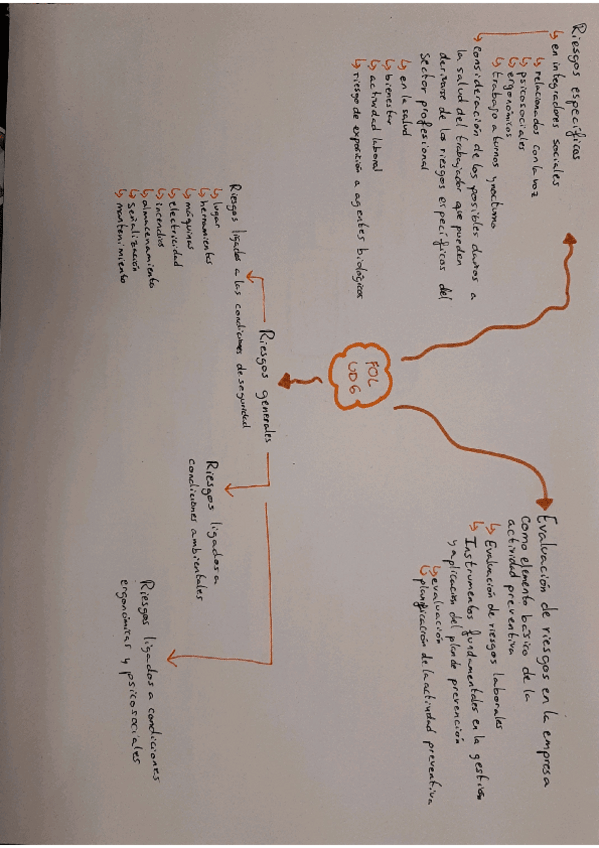 Riesgos específicos
↳ en integradores sociales
↳ relacionados con la voz
↳ psicosociales
↳ ergonómicos
↳ trabajo a turnos y nocturno
↳ consideración de los posibles daños a
la salud del trabajador que pueden
derivar de los riesgos específicos del
sector profesional
↳ en la salud
↳ bienestar
↳ actividad laboral
↳ riesgo de exposición a agentes biológicos
FOL
UD6
Evaluación de riesgos en la empresa
como elemento básico de la
actividad preventiva
↳ Evaluación de riesgos laborales
↳ Instrumentos fundamentales en la gestión
y aplicación del plan de prevención
↳ evaluación
↳ planificación de la actividad preventiva
Riesgos generales
Riesgos ligados a las condiciones de seguridad
↳ lugar
↳ herramientas
↳ máquinas
↳ electricidad
↳ incendios
↳ almacenamiento
↳ señalización
↳ mantenimiento
Riesgos ligados a
condiciones ambientales
Riesgos ligados a condiciones
ergonómicas y psicosociales